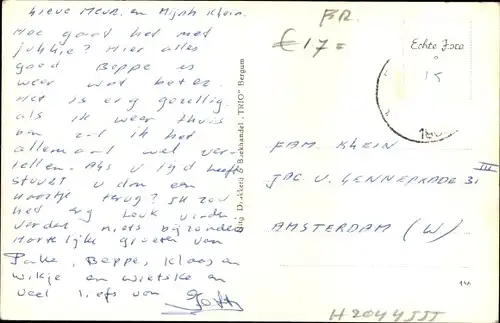 Lieve Mevr. en Mijnh Klein.
Hoe gaat het met
jullie? Hier alles
goed Beppe is
weer wat beter.
Het is erg gezellig
als ik weer thuis
ben zal ik het
allemaal wel ver-
tellen. Als u tijd heeft
stuurt u dan een
kaartje terug? Ik zou
het erg leuk vinden
verder niets bijzonders
Hartelijke groeten van
Pake, Beppe, Klaas en
wikje en wietske en
veel liefs van
Uitg. Drukkerij & Boekhandel „TRIO” Bergum
FR.
€ 17=
Echte Foto
FAM. KLEIN
JAC. V. LENNEPKADE 31 III
AMSTERDAM (W)